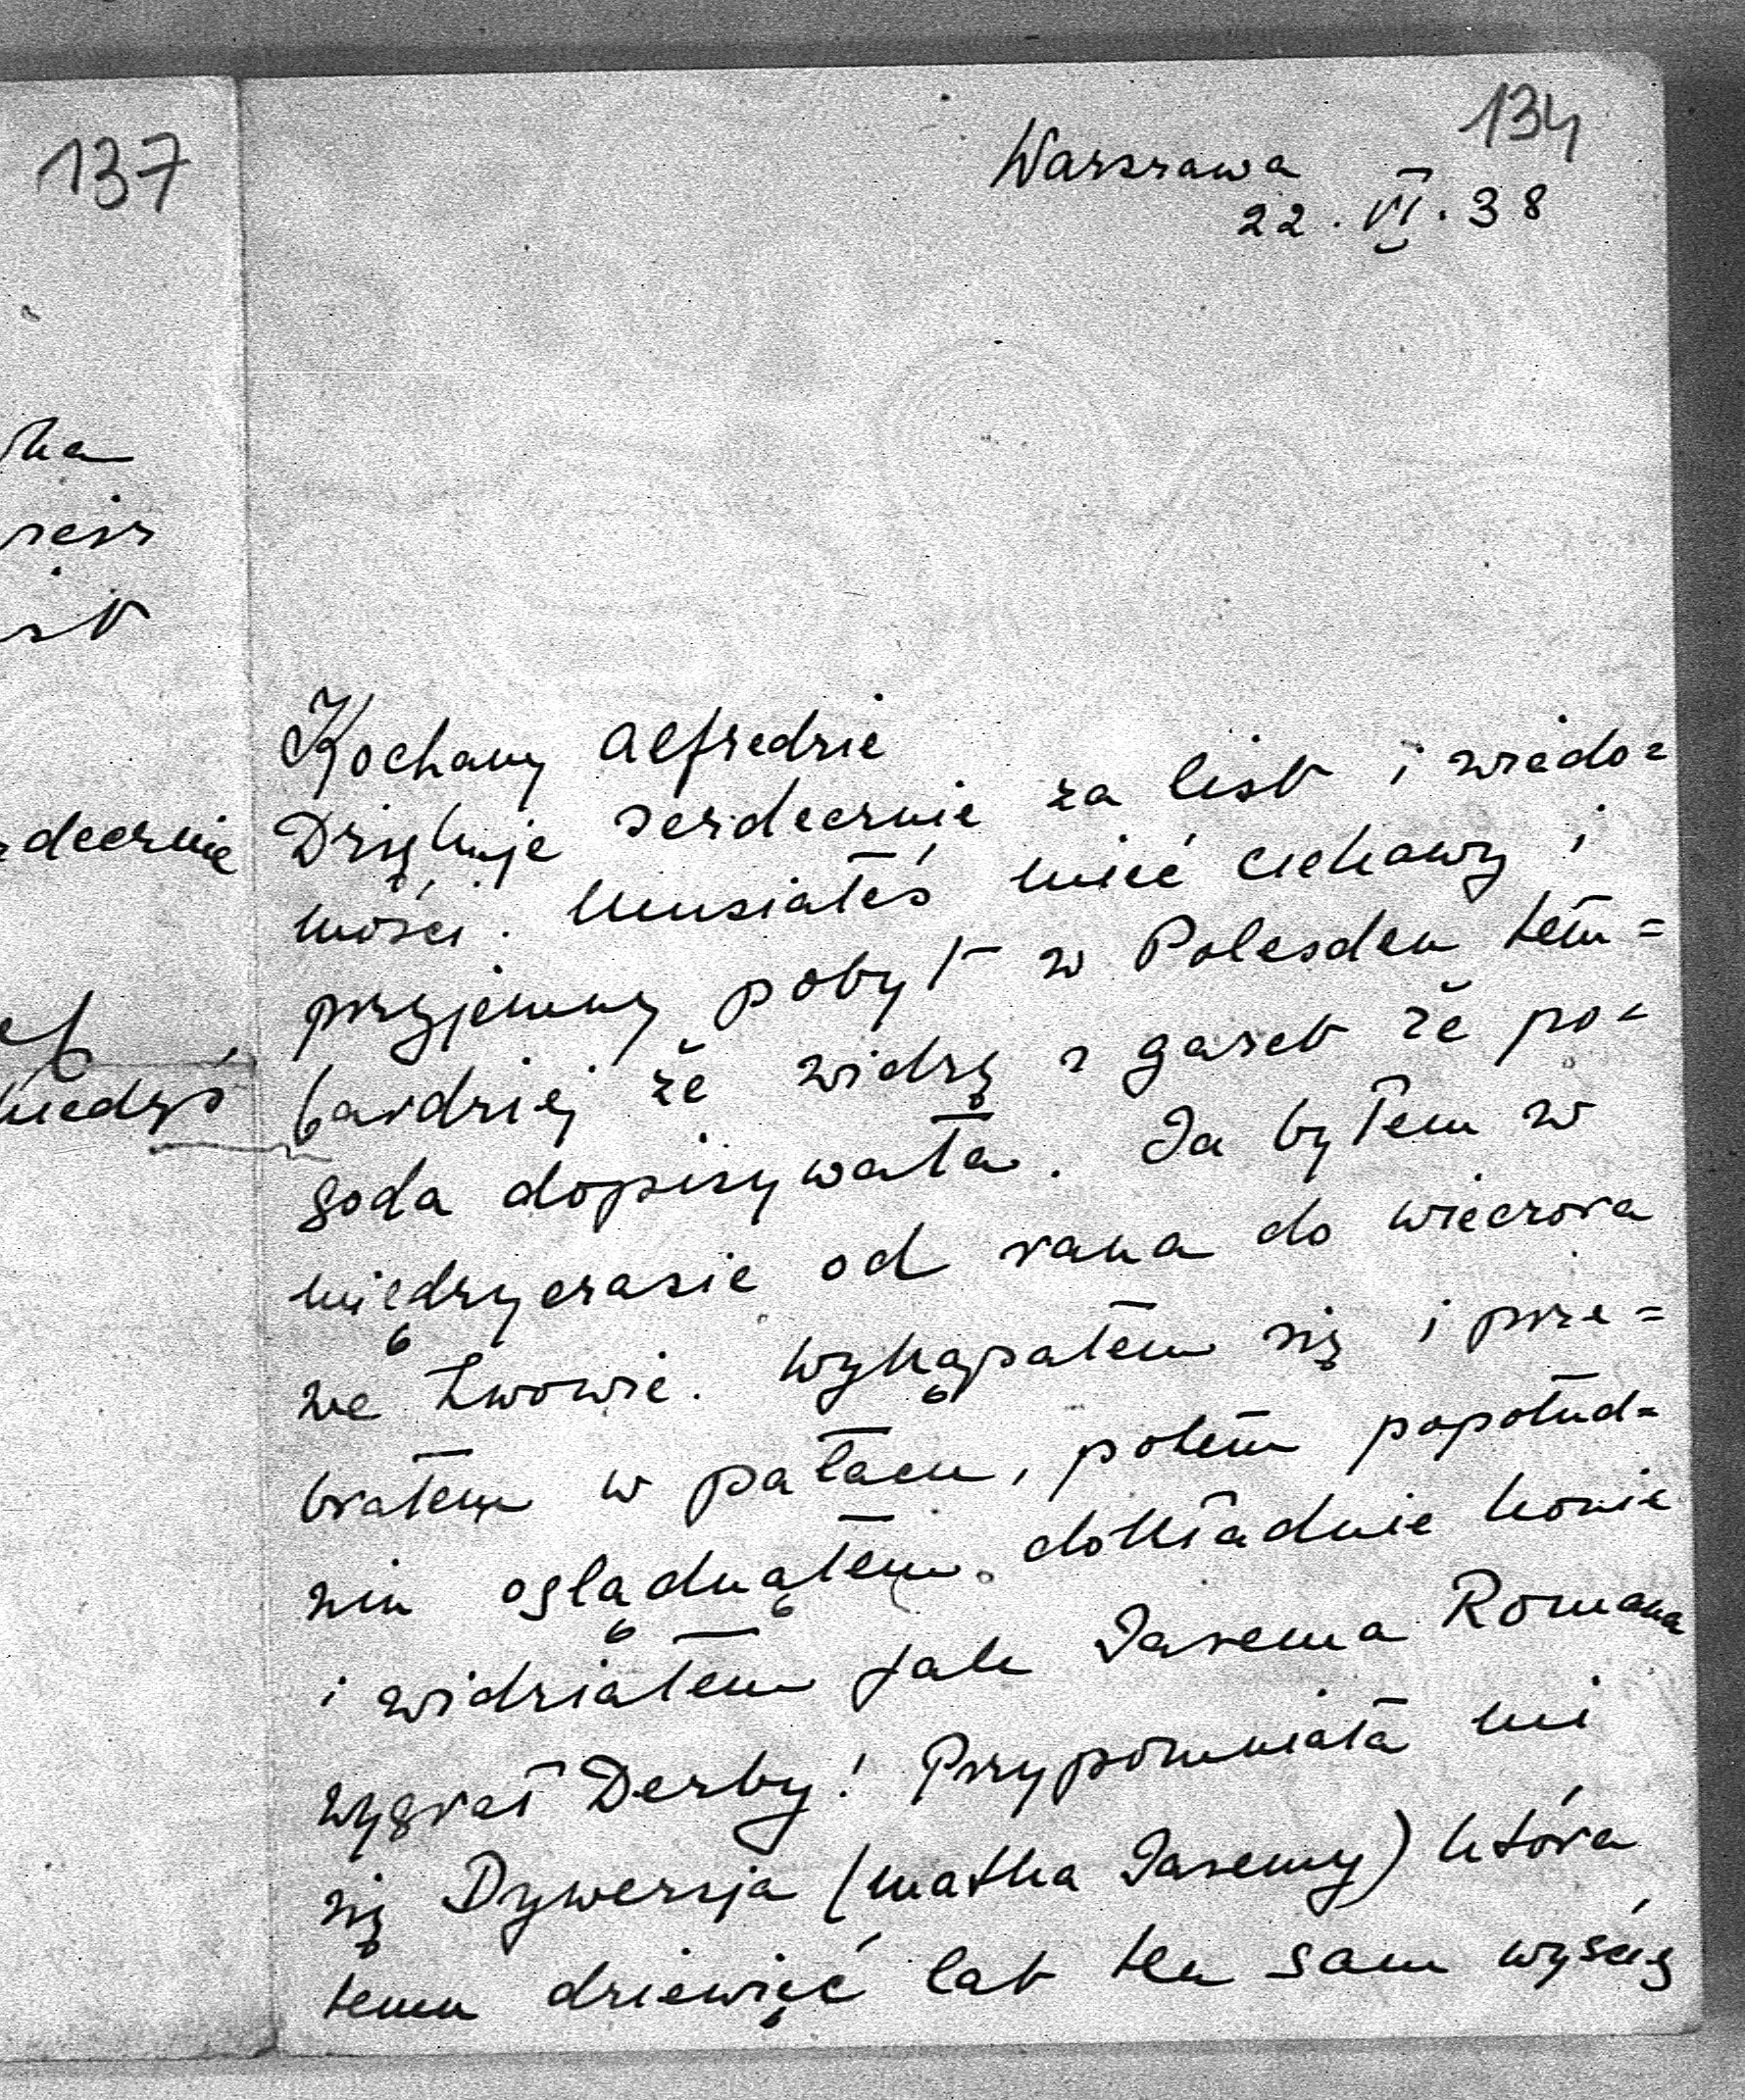 137
ka
decznie
kiedyś
134
Warszawa
22. VI. 38
Kochany Alfredzie
Dziękuję serdecznie za list i wiado=
mości. Musiałeś mieć ciekawy i
przyjemny pobyt w Polesden tem=
bardziej że widzę z gazet że po=
goda dopisywała. Ja byłem w
międzyczasie od rana do wieczora
we Lwowie. Wykąpałem się i prze=
brałem w pałacu, potem popołud=
niu oglądnąłem dokładnie konie
i widziałem jak Jarema Romana
wygrał Derby! Przypomniała mi
się Dywersja (matka Jaremy) która
temu dziewięć lat ten sam wyścig